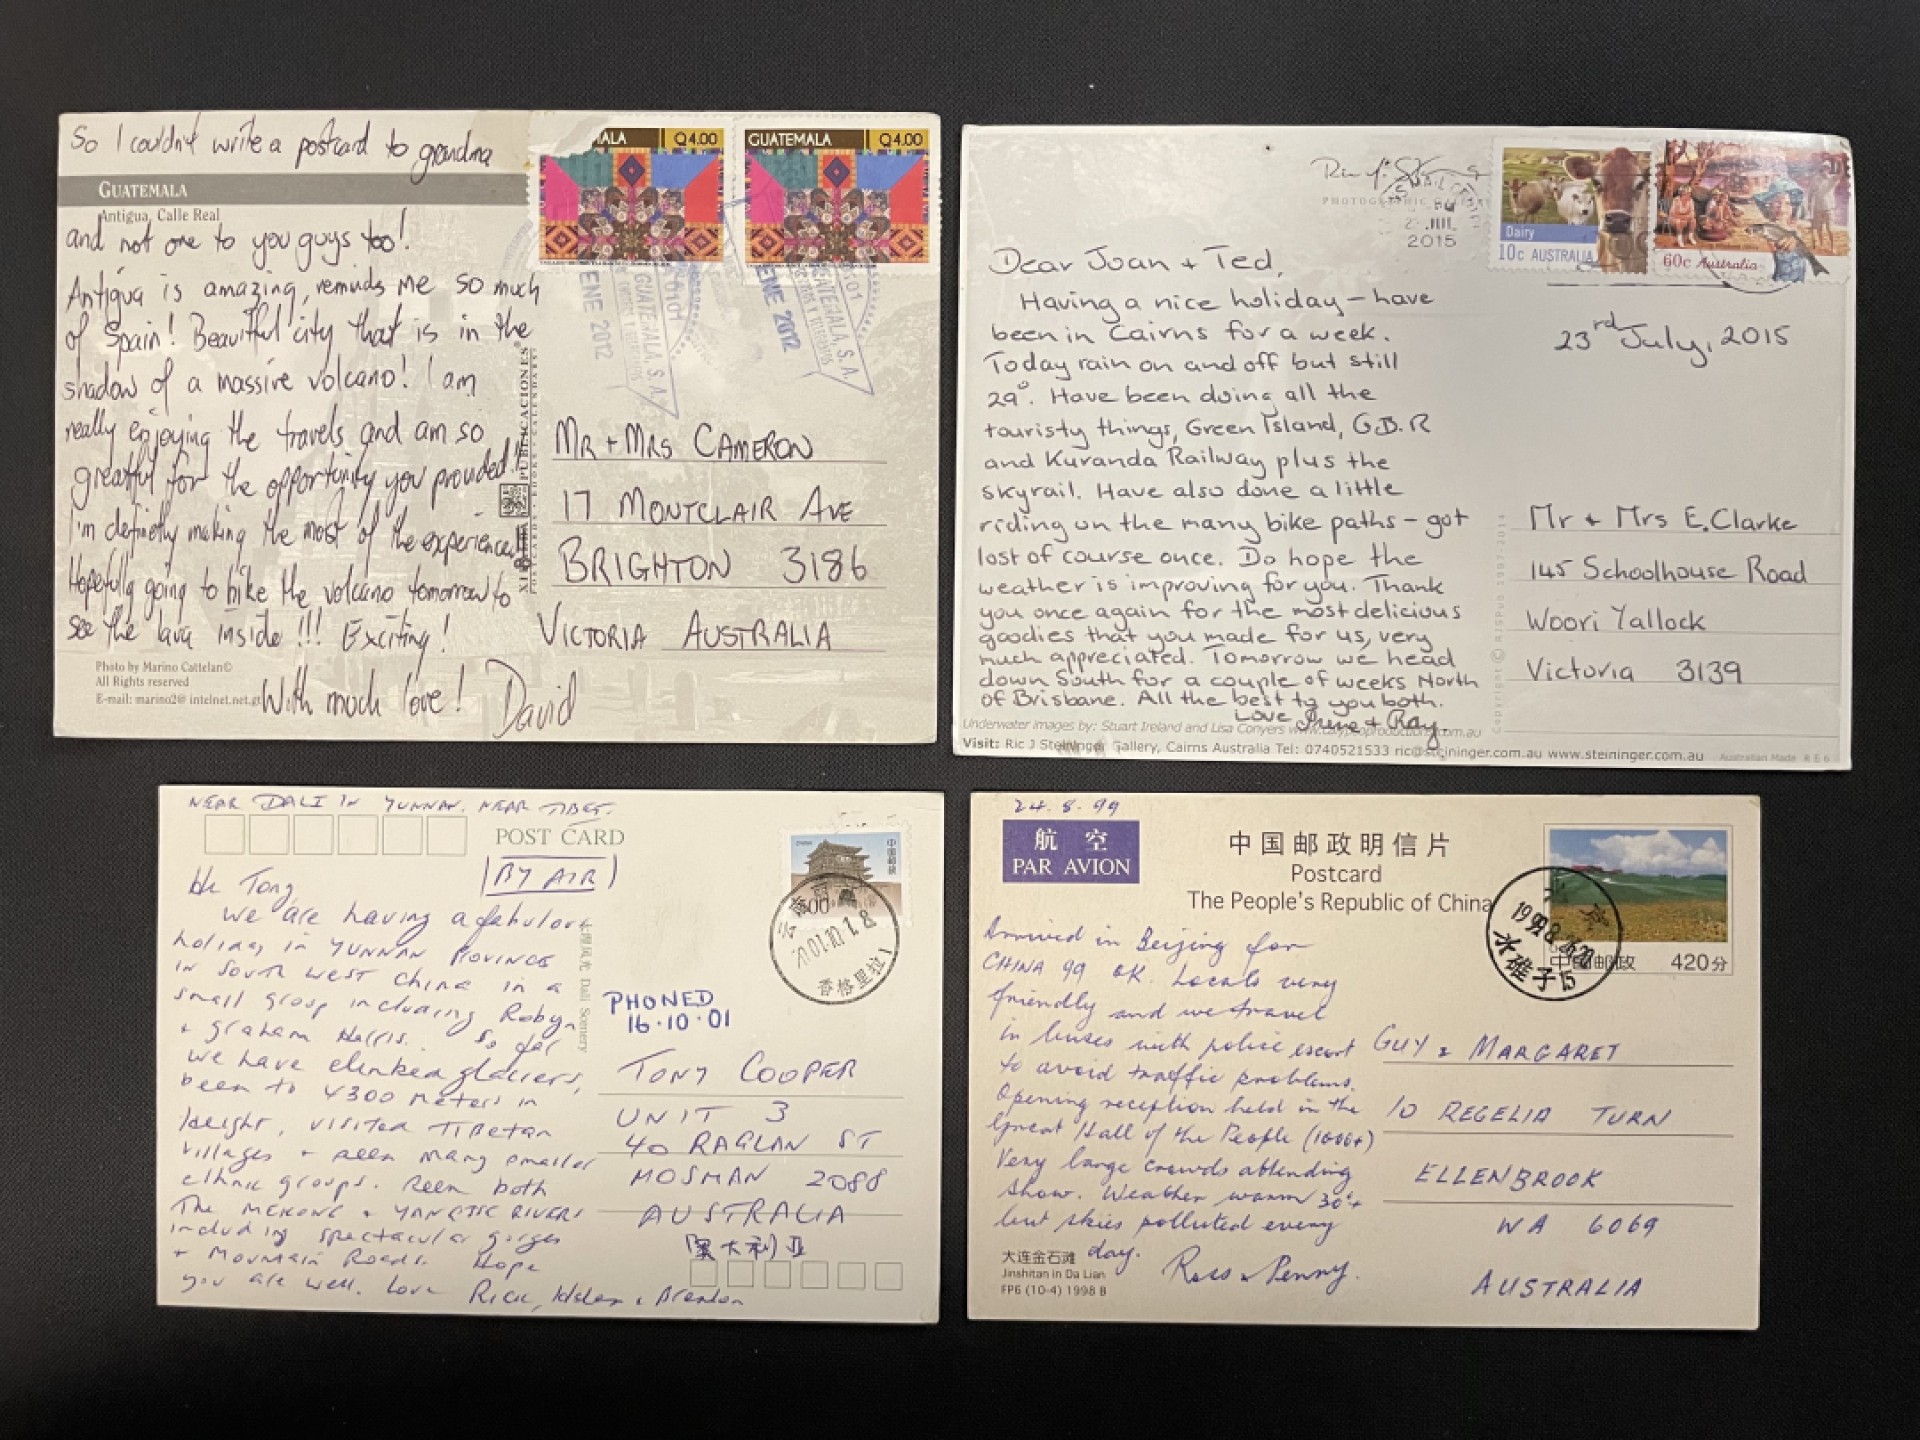 So I couldn't write a postcard to grandma
GUATEMALA
Antigua, Calle Real
and not one to you guys too!
Antigua is amazing, reminds me so much
of Spain! Beautiful city that is in the
shadow of a massive volcano! I am
really enjoying the travels and am so
greatful for the opportunity you provided!!
I'm definetly making the most of the experience!!
Hopefully going to hike the volcano tomorrow to
see the lava inside!!! Exciting!
Photo by Marino Cattelan©
All Rights reserved
E-mail: marino2@intelnet.net.gt
With much love! David
PUBLICACIONES
POSTCARDS · BOOKS · CALENDARS
ALA Q4.00
GUATEMALA Q4.00
ENE 2012
GUATEMALA, S.A.
ENE 2012
GUATEMALA, S.A.
MR + MRS CAMERON
17 MONTCLAIR AVE
BRIGHTON 3186
VICTORIA AUSTRALIA
PHOTOGRAPHIC
JUL
2015
Dairy
10c AUSTRALIA
60c Australia
Dear Joan + Ted,
Having a nice holiday - have
been in Cairns for a week.
Today rain on and off but still
29°. Have been doing all the
touristy things, Green Island, G.B.R
and Kuranda Railway plus the
skyrail. Have also done a little
riding on the many bike paths - got
lost of course once. Do hope the
weather is improving for you. Thank
you once again for the most delicious
goodies that you made for us, very
much appreciated. Tomorrow we head
down South for a couple of weeks North
of Brisbane. All the best to you both.
Love Irene + Ray
23rd July, 2015
Mr + Mrs E. Clarke
145 Schoolhouse Road
Woori Yallock
Victoria 3139
Copyright © RJSPub 1997-2014
Underwater images by: Stuart Ireland and Lisa Conyers www.calypsoproductions.com.au
Visit: Ric J Steininger Gallery, Cairns Australia Tel: 0740521533 ric@steininger.com.au www.steininger.com.au Australian Made RE6
NEAR DALI IN YUNNAN. NEAR TIBET.
POST CARD
BY AIR
Tony,
we are having a fabulous
holiday in YUNNAN PROVINCE
in South West China in a
small group including Robyn
+ Graham Harris. So far
we have climbed glaciers,
been to 4300 meters in
height, visited TIBETAN
villages + seen many smaller
ethnic groups. Seen both
The MEKONG + YANGTZE RIVERS
including spectacular gorges
+ Mountain Roads. Hope
you are well. Love Rick, Helen & Brendon
Dali Scenery
中国邮政
香格里拉
PHONED
16·10·01
TONY COOPER
UNIT 3
40 RAGLAN ST
MOSMAN 2088
AUSTRALIA
澳大利亚
24.8.99
航空
PAR AVION
中国邮政明信片
Postcard
The People's Republic of China
中国邮政 420分
水碓子15
Arrived in Beijing for
CHINA 99 OK. Locals very
friendly and we travel
in buses with police escort
to avoid traffic problems.
Opening reception held in the
Great Hall of the People (1000+)
Very large crowds attending
show. Weather warm 30°+
but skies polluted every
day.
Ross & Penny.
GUY & MARGARET
10 REGELIA TURN
ELLENBROOK
WA 6069
AUSTRALIA
大连金石滩
Jinshitan in Da Lian
FP6 (10-4) 1998 B